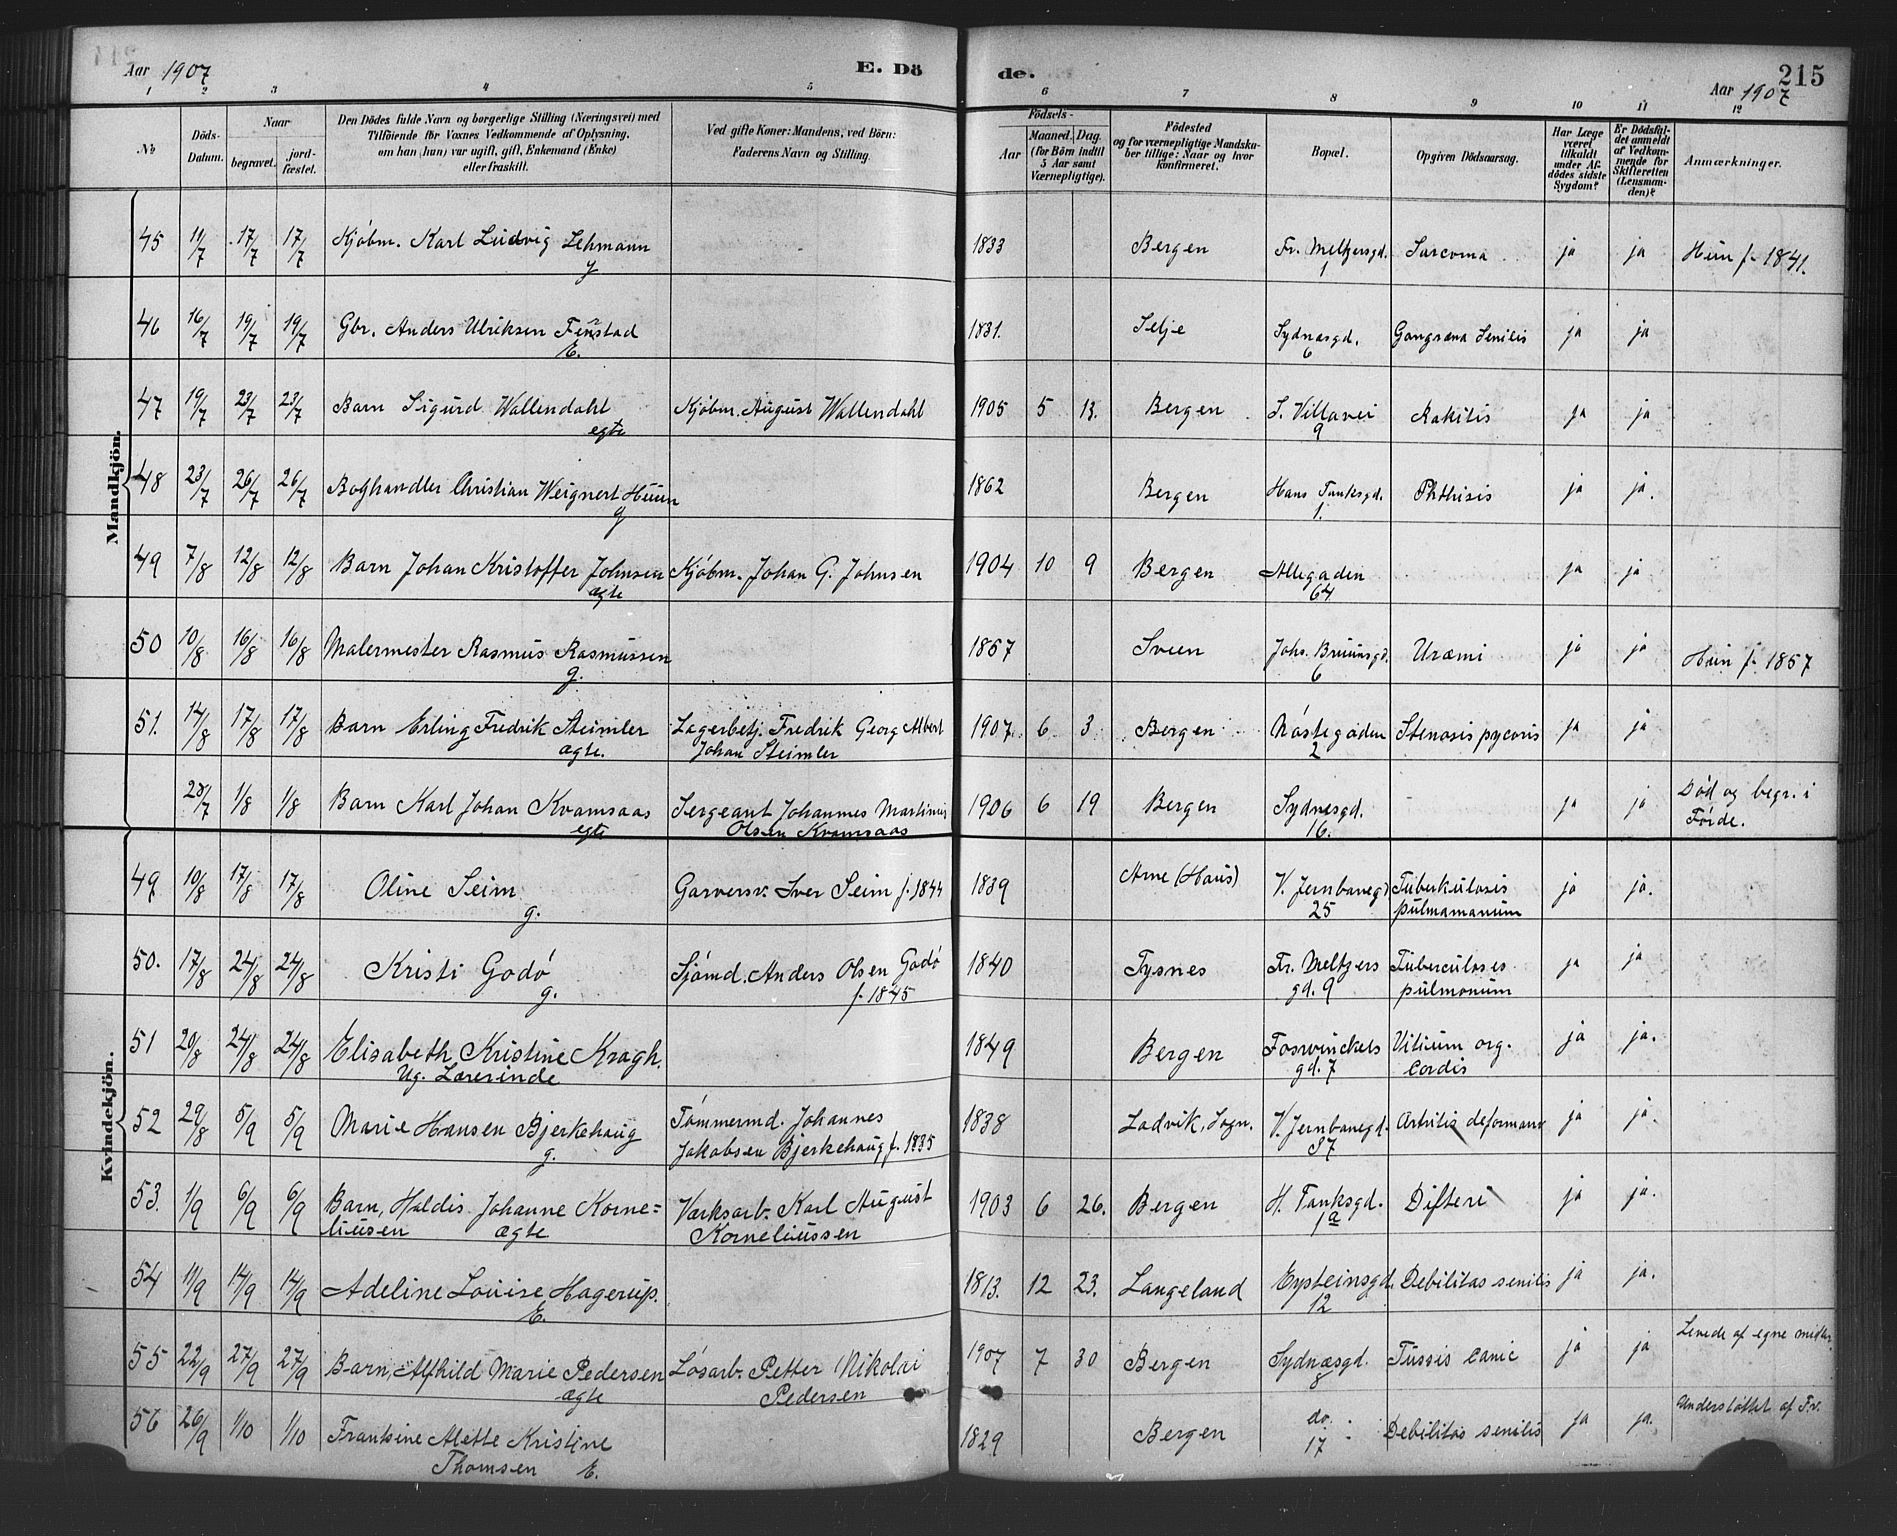 Aar 1907 E. Dö de. Aar 1907 215
1 2 3 4 5 6 7 8 9 10 11 12
No
Döds-Datum.
Naar
begravet.
jord-fæstet.
Den Dödes fulde Navn og borgerlige Stilling (Næringsvei) med
Tilföiende för Voxnes Vedkommende af Oplysning,
om han (hun) var ugift, gift, Enkemand (Enke)
eller fraskilt.
Ved gifte Koner: Mandens, ved Börn:
Faderens Navn og Stilling.
Födsels-
Aar
Maaned. Dag.
(for Börn indtil
5 Aar samt
Værnepligtige).
Födested
og for værnepligtige Mandsku-
ber tillige: Naar og hvor
konfirmeret.
Bopæl.
Opgiven Dödsaarsag.
Har Læge
været
tilkaldt
under Af-
dödes sidste
Sygdom?
Er Dödsfal-
det anmeldt
af Vedkom-
mende for
Skifteretten
(Lensman-
den)?
Anmærkninger.
Mandkjön.
45 11/7 17/7 17/7 Kjöbm. Karl Ludvig Lehmann 1833 Bergen Fr. Meltzersgd. Sarcoma ja ja Hun f. 1841.
g 1
46 16/7 19/7 19/7 Gbr. Anders Ulriksen Finstad 1831. Selje Sydnæsgd. Gangræna Senilis ja ja
E. 6
47 19/7 23/7 23/7 Barn Sigurd Wallendahl Kjöbm. August Wallendahl 1905 5 13. Bergen S. Villavei Rakitis ja ja
egte 9
48 23/7 26/7 26/7 Boghandler Christian Weignert Huun 1862 Bergen Hans Tanksgd. Phthisis ja ja.
g 1.
49 7/8 12/8 12/8 Barn Johan Kristoffer Johnsen Kjöbm. Johan G. Johnsen 1904 10 9 Bergen Allegaden ja ja
ægte 64
50 10/8 16/8 16/8 Malermester Rasmus Rasmussen 1857 Sveen Johs. Bruunsgd. Uræmi ja ja Hun f. 1857
g. 6
51. 14/8 17/8 17/8 Barn Erling Fredrik Steimler Lagerbetj. Fredrik Georg Albert 1907. 6 3 Bergen Nöstegaden Stenosis pycoris ja ja
ægte. Johan Steimler 2
28/7 1/8 1/8 Barn Karl Johan Kvamsaas Sergeant Johannes Martinus 1906 6 19 Bergen Sydnesgd. ja ja Död og begr. i
egte Olsen Kvamsaas 16. Förde.
Kvindekjön.
49 10/8 17/8 17/8 Oline Seim Garversv. Iver Seim f. 1844 1839 Arne (Haus) V. Jernbanegd Tuberkulosis ja ja.
g. 25 pulmamanum
50. 17/8 24/8 24/8 Kristi Godö Sjömd. Anders Olsen Godö 1840 Tysnes Fr. Meltzers Tuberculoses ja ja
g. f. 1845 gd. 9 pulmonum
51 20/8 24/8 24/8 Elisabeth Kristine Kragh. 1849 Bergen Fosswinckels Vitium org. ja ja.
Ug. Lærerinde gd. 7 Cordis
52 29/8 5/9 5/9 Marie Hansen Bjerkehaug Tömmermd. Johannes 1838 Ladvik, Sogn. V. Jernbanegd. Artritis deformans ja ja.
g. Jakobsen Bjerkehaug f. 1835 37
53. 1/9 6/9 6/9 Barn, Haldis Johanne Korne= Værksarb. Karl August 1903 6 26. Bergen H. Tanksgd. Difteri ja ja.
liussen ægte Korneliussen 1a
54 11/9 14/9 14/9 Adeline Louise Hagerup. 1813. 12 23. Langeland Eysteinsgd. Debilitas senilis ja ja.
E. 12
55 22/9 27/9 27/9 Barn, Alfhild Marie Pedersen Lösarb. Petter Nikolai 1907 7 30 Bergen Sydnæsgd. Tussis canic ja ja Levede af egne midler.
ægte Pedersen 8
56 26/9 1/10 1/10 Frantsine Alette Kristine 1829 Bergen do. Debilitas senilis ja ja. Understöttet af Fv.
Thomsen E. 17